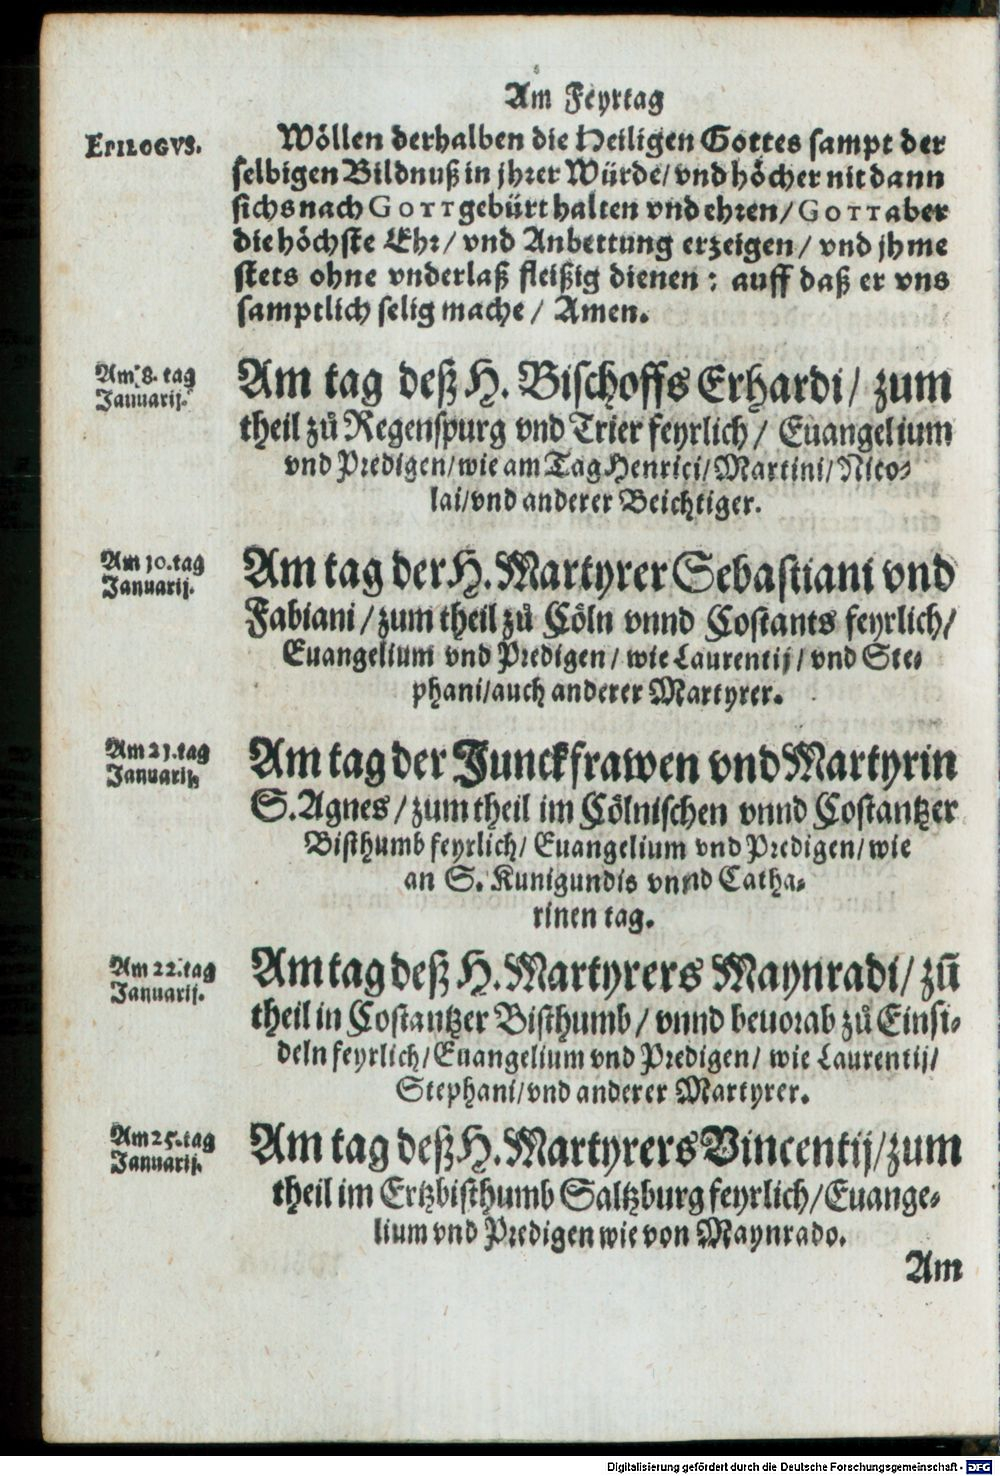 Am Feyrtag
EPILOGVS.
Wöllen derhalben die Heiligen Gottes sampt der
selbigen Bildnuß in jhrer Würde/ vnd höcher nit dann
sichs nach GOTT gebürt halten vnd ehren/ GOTT aber
die höchste Ehr/ vnd Anbettung erzeigen/ vnd jhme
stets ohne vnderlaß fleißig dienen: auff daß er vns
samptlich selig mache/ Amen.
Am 8. tag
Januarij.
Am tag deß H. Bischoffs Erhardi/ zum
theil zů Regenspurg vnd Trier feyrlich/ Euangelium
vnd Predigen/ wie am Tag Henrici/ Martini/ Nico-
lai/ vnd anderer Beichtiger.
Am 10. tag
Januarij.
Am tag der H. Martyrer Sebastiani vnd
Fabiani/ zum theil zů Cöln vnnd Costants feyrlich/
Euangelium vnd Predigen/ wie Laurentij/ vnd Ste-
phani/ auch anderer Martyrer.
Am 21. tag
Januarij.
Am tag der Junckfrawen vnd Martyrin
S. Agnes/ zum theil im Cölnischen vnnd Costantzer
Bisthumb feyrlich/ Euangelium vnd Predigen/ wie
an S. Kunigundis vnnd Catha-
rinen tag.
Am 22. tag
Januarij.
Am tag deß H. Martyrers Maynradi/ zū
theil in Costantzer Bisthumb/ vnnd beuorab zů Einsi-
deln feyrlich/ Euangelium vnd Predigen/ wie Laurentij/
Stephani/ vnd anderer Martyrer.
Am 25. tag
Januarij.
Am tag deß H. Martyrers Vincentij/ zum
theil im Ertzbisthumb Saltzburg feyrlich/ Euange-
lium vnd Predigen wie von Maynrado.
Am
Digitalisierung gefördert durch die Deutsche Forschungsgemeinschaft - DFG